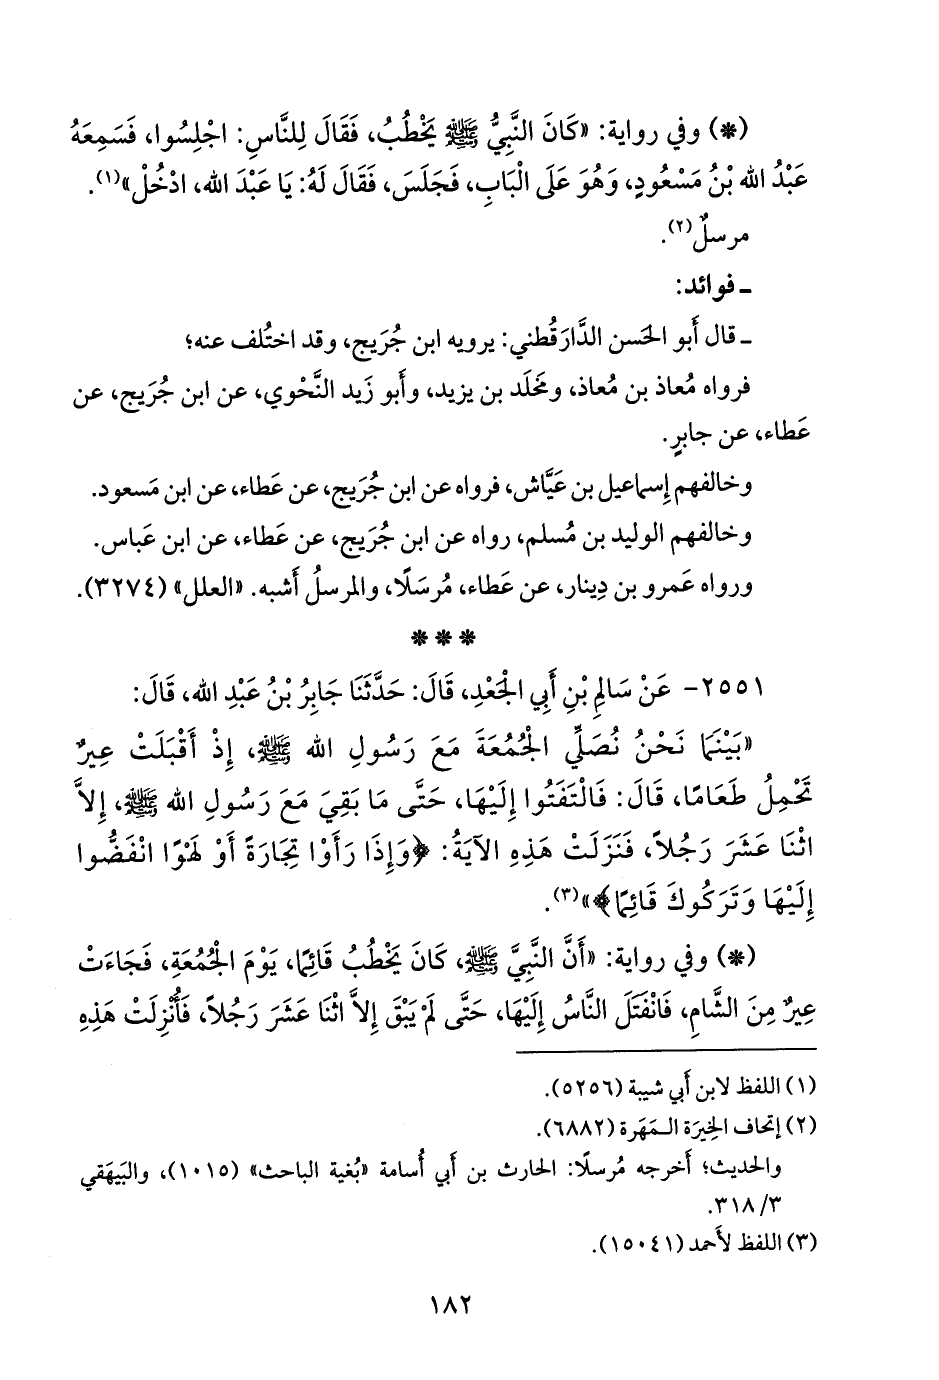 (*) وفي رواية: «كَانَ النَّبِيُّ ﷺ يَخْطُبُ، فَقَالَ لِلنَّاسِ: اجْلِسُوا، فَسَمِعَهُ
عَبْدُ الله بْنُ مَسْعُودٍ، وَهُوَ عَلَى الْبَابِ، فَجَلَسَ، فَقَالَ لَهُ: يَا عَبْدَ الله، ادْخُلْ»(١).
مرسلٌ(٢).
ـ فوائد:
ـ قال أَبو الحَسن الدَّارَقُطني: يرويه ابن جُرَيج، وقد اختُلف عنه؛
فرواه مُعاذ بن مُعاذ، ومَخلَد بن يزيد، وأَبو زَيد النَّحْوي، عن ابن جُرَيج، عن
عَطاء، عن جابرٍ.
وخالفهم إِسماعيل بن عَيَّاش، فرواه عن ابن جُرَيج، عن عَطاء، عن ابن مَسعود.
وخالفهم الوليد بن مُسلم، رواه عن ابن جُرَيج، عن عَطاء، عن ابن عَباس.
ورواه عَمرو بن دِينار، عن عَطاء، مُرسَلًا، والمرسلُ أَشبه. «العلل» (٣٢٧٤).
* * *
٢٥٥١- عَنْ سَالِمِ بْنِ أَبِي الْجَعْدِ، قَالَ: حَدَّثَنَا جَابِرُ بْنُ عَبْدِ الله، قَالَ:
«بَيْنَمَا نَحْنُ نُصَلِّي الْجُمُعَةَ مَعَ رَسُولِ الله ﷺ، إِذْ أَقْبَلَتْ عِيرٌ
تَحْمِلُ طَعَامًا، قَالَ: فَالْتَفَتُوا إِلَيْهَا، حَتَّى مَا بَقِيَ مَعَ رَسُولِ الله ﷺ، إِلاَّ
اثْنَا عَشَرَ رَجُلاً، فَنَزَلَتْ هَذِهِ الآيَةُ: ﴿وَإِذَا رَأَوْا تِجَارَةً أَوْ لَهْوًا انْفَضُّوا
إِلَيْهَا وَتَرَكُوكَ قَائِمًا﴾»(٣).
(*) وفي رواية: «أَنَّ النَّبِيَّ ﷺ، كَانَ يَخْطُبُ قَائِمًا، يَوْمَ الْجُمُعَةِ، فَجَاءَتْ
عِيرٌ مِنَ الشَّامِ، فَانْفَتَلَ النَّاسُ إِلَيْهَا، حَتَّى لَمْ يَبْقَ إِلاَّ اثْنَا عَشَرَ رَجُلاً، فَأُنْزِلَتْ هَذِهِ
(١) اللفظ لابن أَبي شيبة (٥٢٥٦).
(٢) إتحاف الخِيرَة الـمَهَرة (٦٨٨٢).
والحديث؛ أَخرجه مُرسلًا: الحارث بن أَبي أُسامة «بُغية الباحث» (١٠١٥)، والبَيهَقي
٣/ ٣١٨.
(٣) اللفظ لأَحمد (١٥٠٤١).
١٨٢